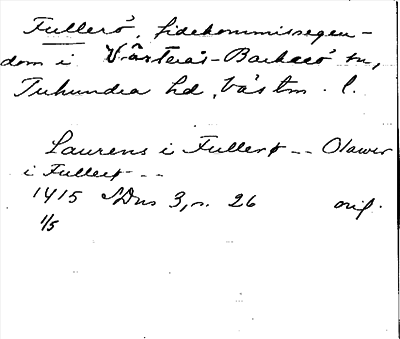 Fullerö, fidekommissegen-
dom i Västerås-Barkarö sn,
Tuhundra hd, Västm. l.
Laurens i Fullerø -- Olawer
i Fullerø --
1415 SDns 3, s. 26 orig.
1/5